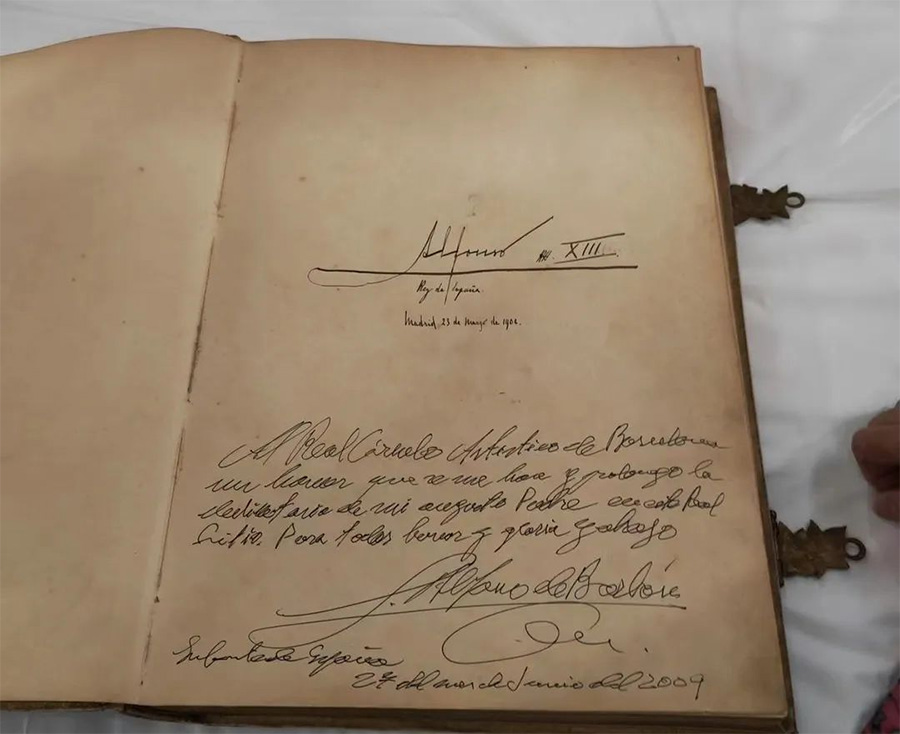 Alfonso XIII
Rey de España
Madrid, 23 de Mayo de 190
Al Real Círculo Artístico de Barcelona
un honor que se me hace y prolongo la
de mi augusto Padre en este Real
Sitio. Para todos honor y gloria y abrazo
Alfonso de Borbón
Infante de España
27 del mes de Junio del 2009